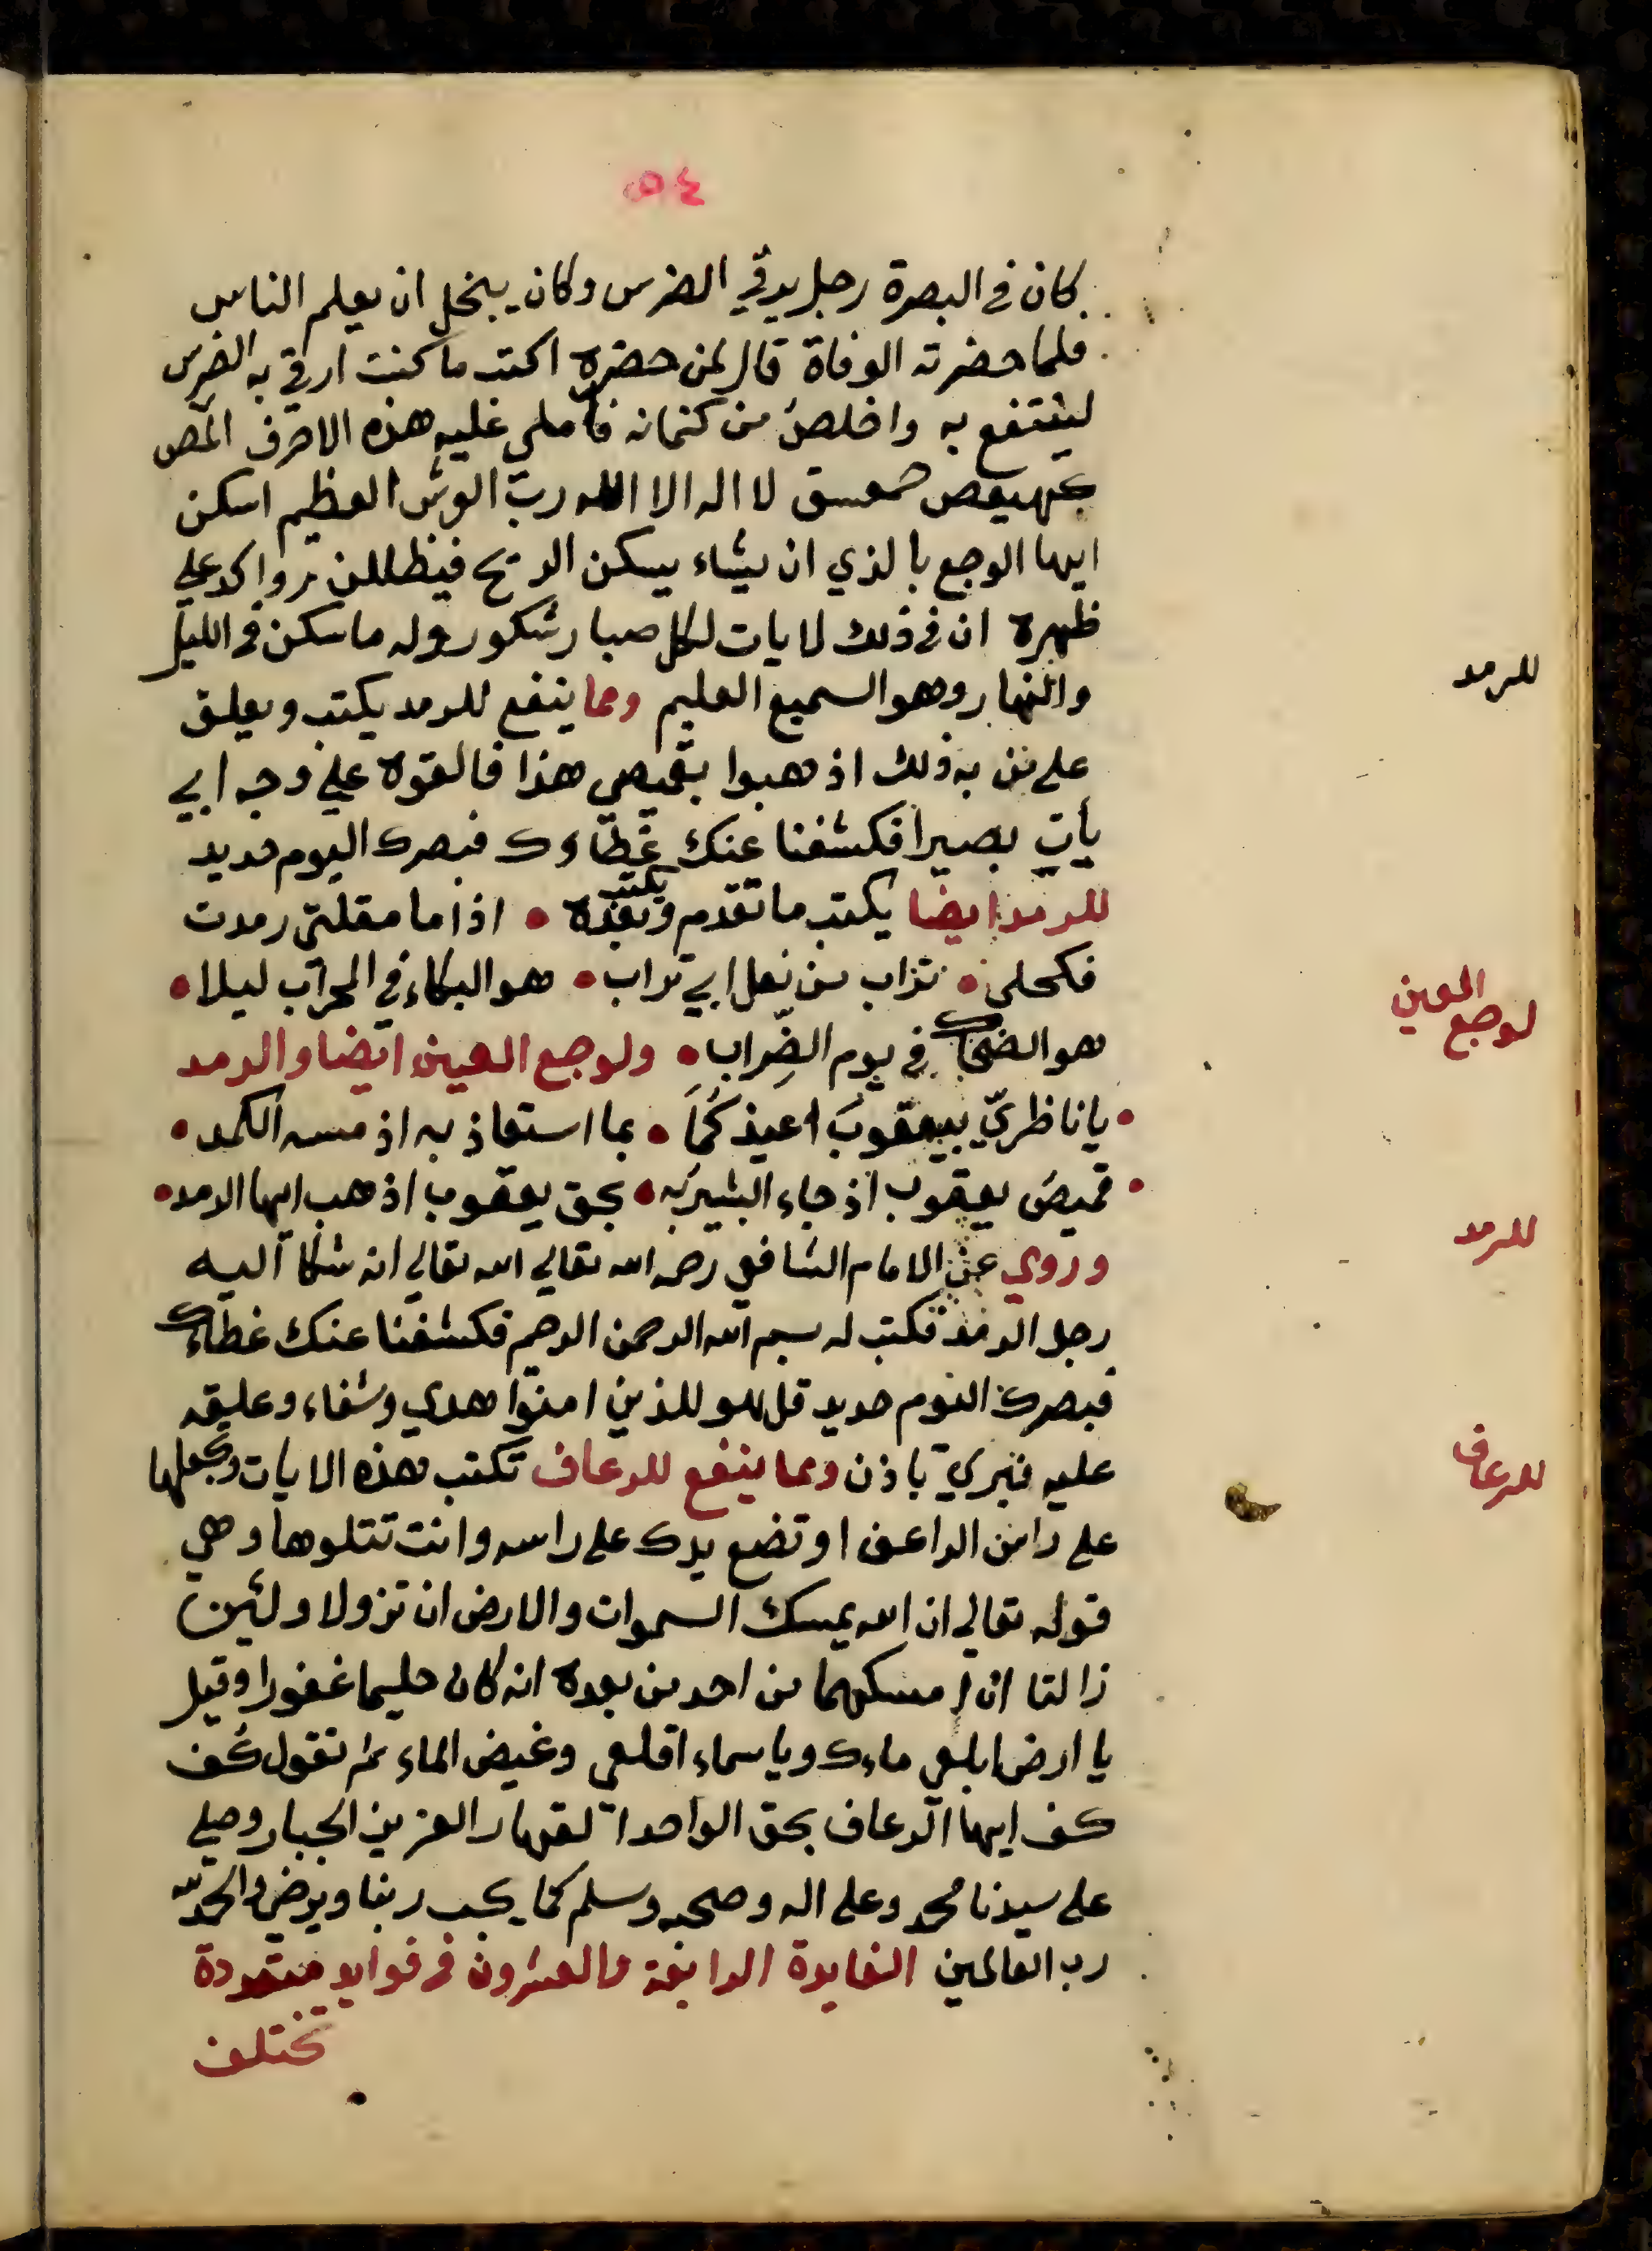 ٥٤
كان في البصرة رجل يرقي الضرس وكان يبخل ان يعلم الناس
فلما حضرته الوفاة قال لمن حضره اكتب ما كنت ارقي به الضرس
لينتفع به واخلص من كتمانه فاملى عليه هذه الاحرف المص
كهيعص حمعسق لا اله الا الله رب العرش العظيم اسكن
ايها الوجع بالذي ان يشاء يسكن الريح فيظللن رواكد علي
ظهره ان في ذلك لايات لكل صبار شكور وله ما سكن في الليل
والنهار وهو السميع العليم ومما ينفع للرمد يكتب ويعلق
للرمد
على من به ذلك اذهبوا بقميصي هذا فالقوه علي وجه ابي
يأت بصيرا فكشفنا عنك غطاوك فبصرك اليوم حديد
للرمد ايضا يكتب ما تقدم ويكتب بعده • اذا ما مقلتي رمدت
فكحلي • تراب من نعل ابي تراب • هو البكاء في المحراب ليلا •
لوجع العين
هو الضحاك في يوم الضراب • ولوجع العين ايضا والرمد
• يا ناظريّ بيعقوب اعيذكما • بما استعاذ به اذ مسه الكمد •
• قميص يعقوب اذ جاء البشير به • بحق يعقوب اذهب ايها الرمد •
وروي عن الامام الشافعي رضي الله تعالي الله تعالي انه شكا اليه
للرمد
رجل الرمد فكتب له بسم الله الرحمن الرحيم فكشفنا عنك غطاءك
فبصرك اليوم حديد قل هو للذين امنوا هدي وشفاء وعليقه
عليه فبري باذن ومما ينفع للرعاف تكتب هذه الايات وتجعلها
للرعاف
على راس الراعف او تضع يدك على راسه وانت تتلوها وهي
قوله تعالي ان الله يمسك السموات والارض ان تزولا ولئن
زالتا ان امسكهما من احد من بعده انه كان حليما غفورا وقيل
يا ارض ابلعي ماءك ويا سماء اقلعي وغيض الماء ثم تقول كف
كف ايها الرعاف بحق الواحد القهار العزيز الجبار وصلي
على سيدنا محمد وعلى اله وصحبه وسلم كما يحب ربنا ويرضي والحمد لله
رب العالمين الفايدة الرابعة والعشرون في فوايد متعددة
تختلف